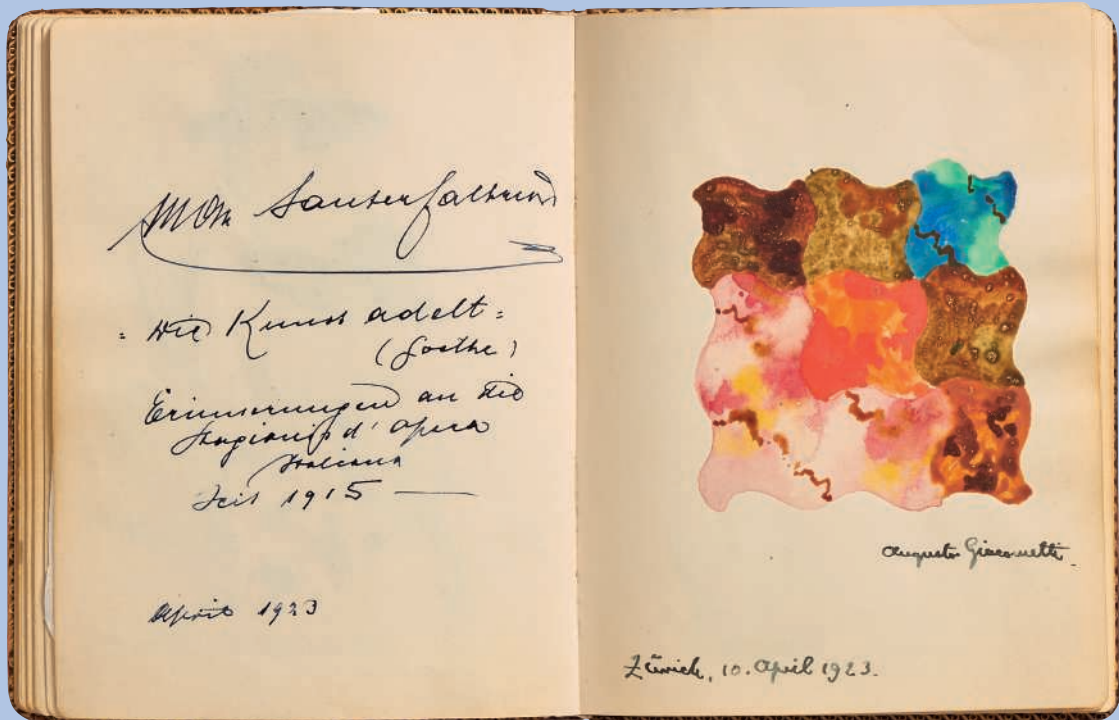 „Die Kunst adelt"
(Goethe)
Erinnerungen an die
Stagioni d'Opera
Italiana
Seit 1915 —
April 1923
Augusto Giacometti.
Zürich, 10. April 1923.